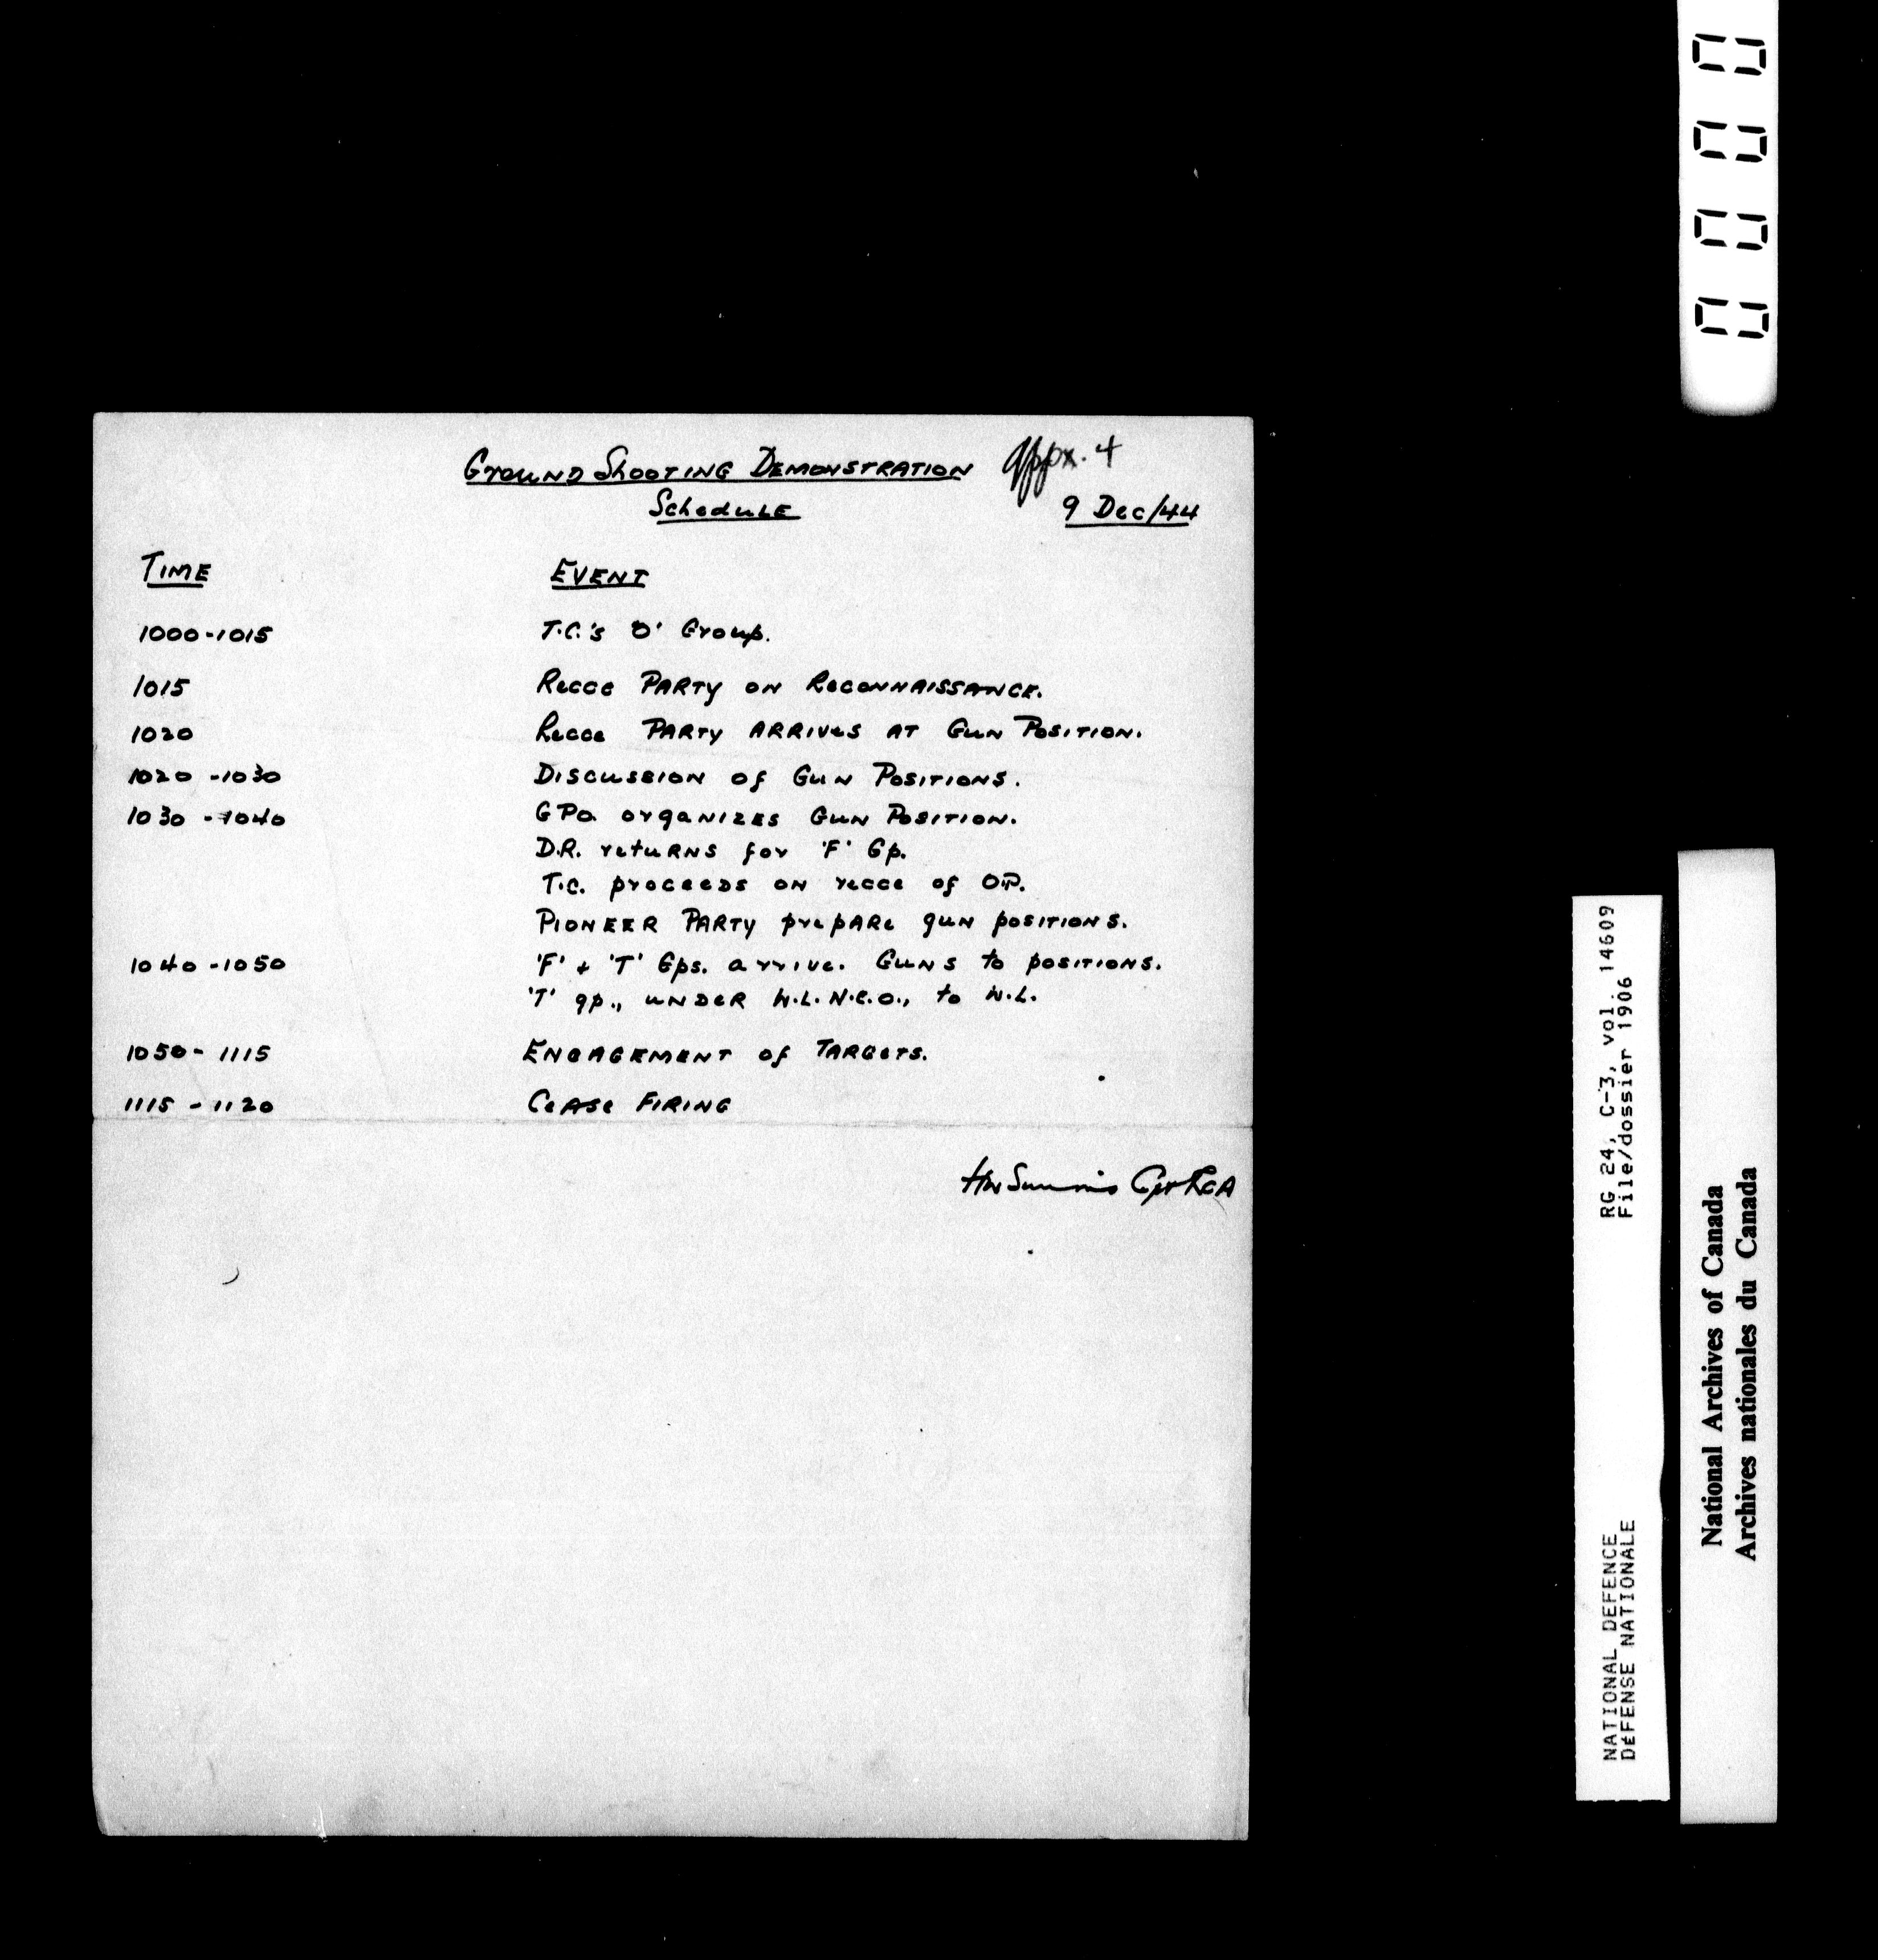 Ground Shooting Demonstration Appx. 4
Schedule 9 Dec/44
Time Event
1000-1015 T.C.'s 'O' Group.
1015 Recce Party on Reconnaissance.
1020 Recce Party arrives at Gun Position.
1020-1030 Discussion of Gun Positions.
1030-1040 GPO. organizes Gun Position.
D.R. returns for 'F' Gp.
T.C. proceeds on recce of O.P.
Pioneer Party prepare gun positions.
1040-1050 'F' + 'T' Gps. arrive. Guns to positions.
'T' gp., under W.L. N.C.O., to W.L.
1050-1115 Engagement of Targets.
1115-1120 Cease Firing
Capt RCA
0000
RG 24, C-3, vol. 14609
File/dossier 1906
NATIONAL DEFENCE
DÉFENSE NATIONALE
National Archives of Canada
Archives nationales du Canada